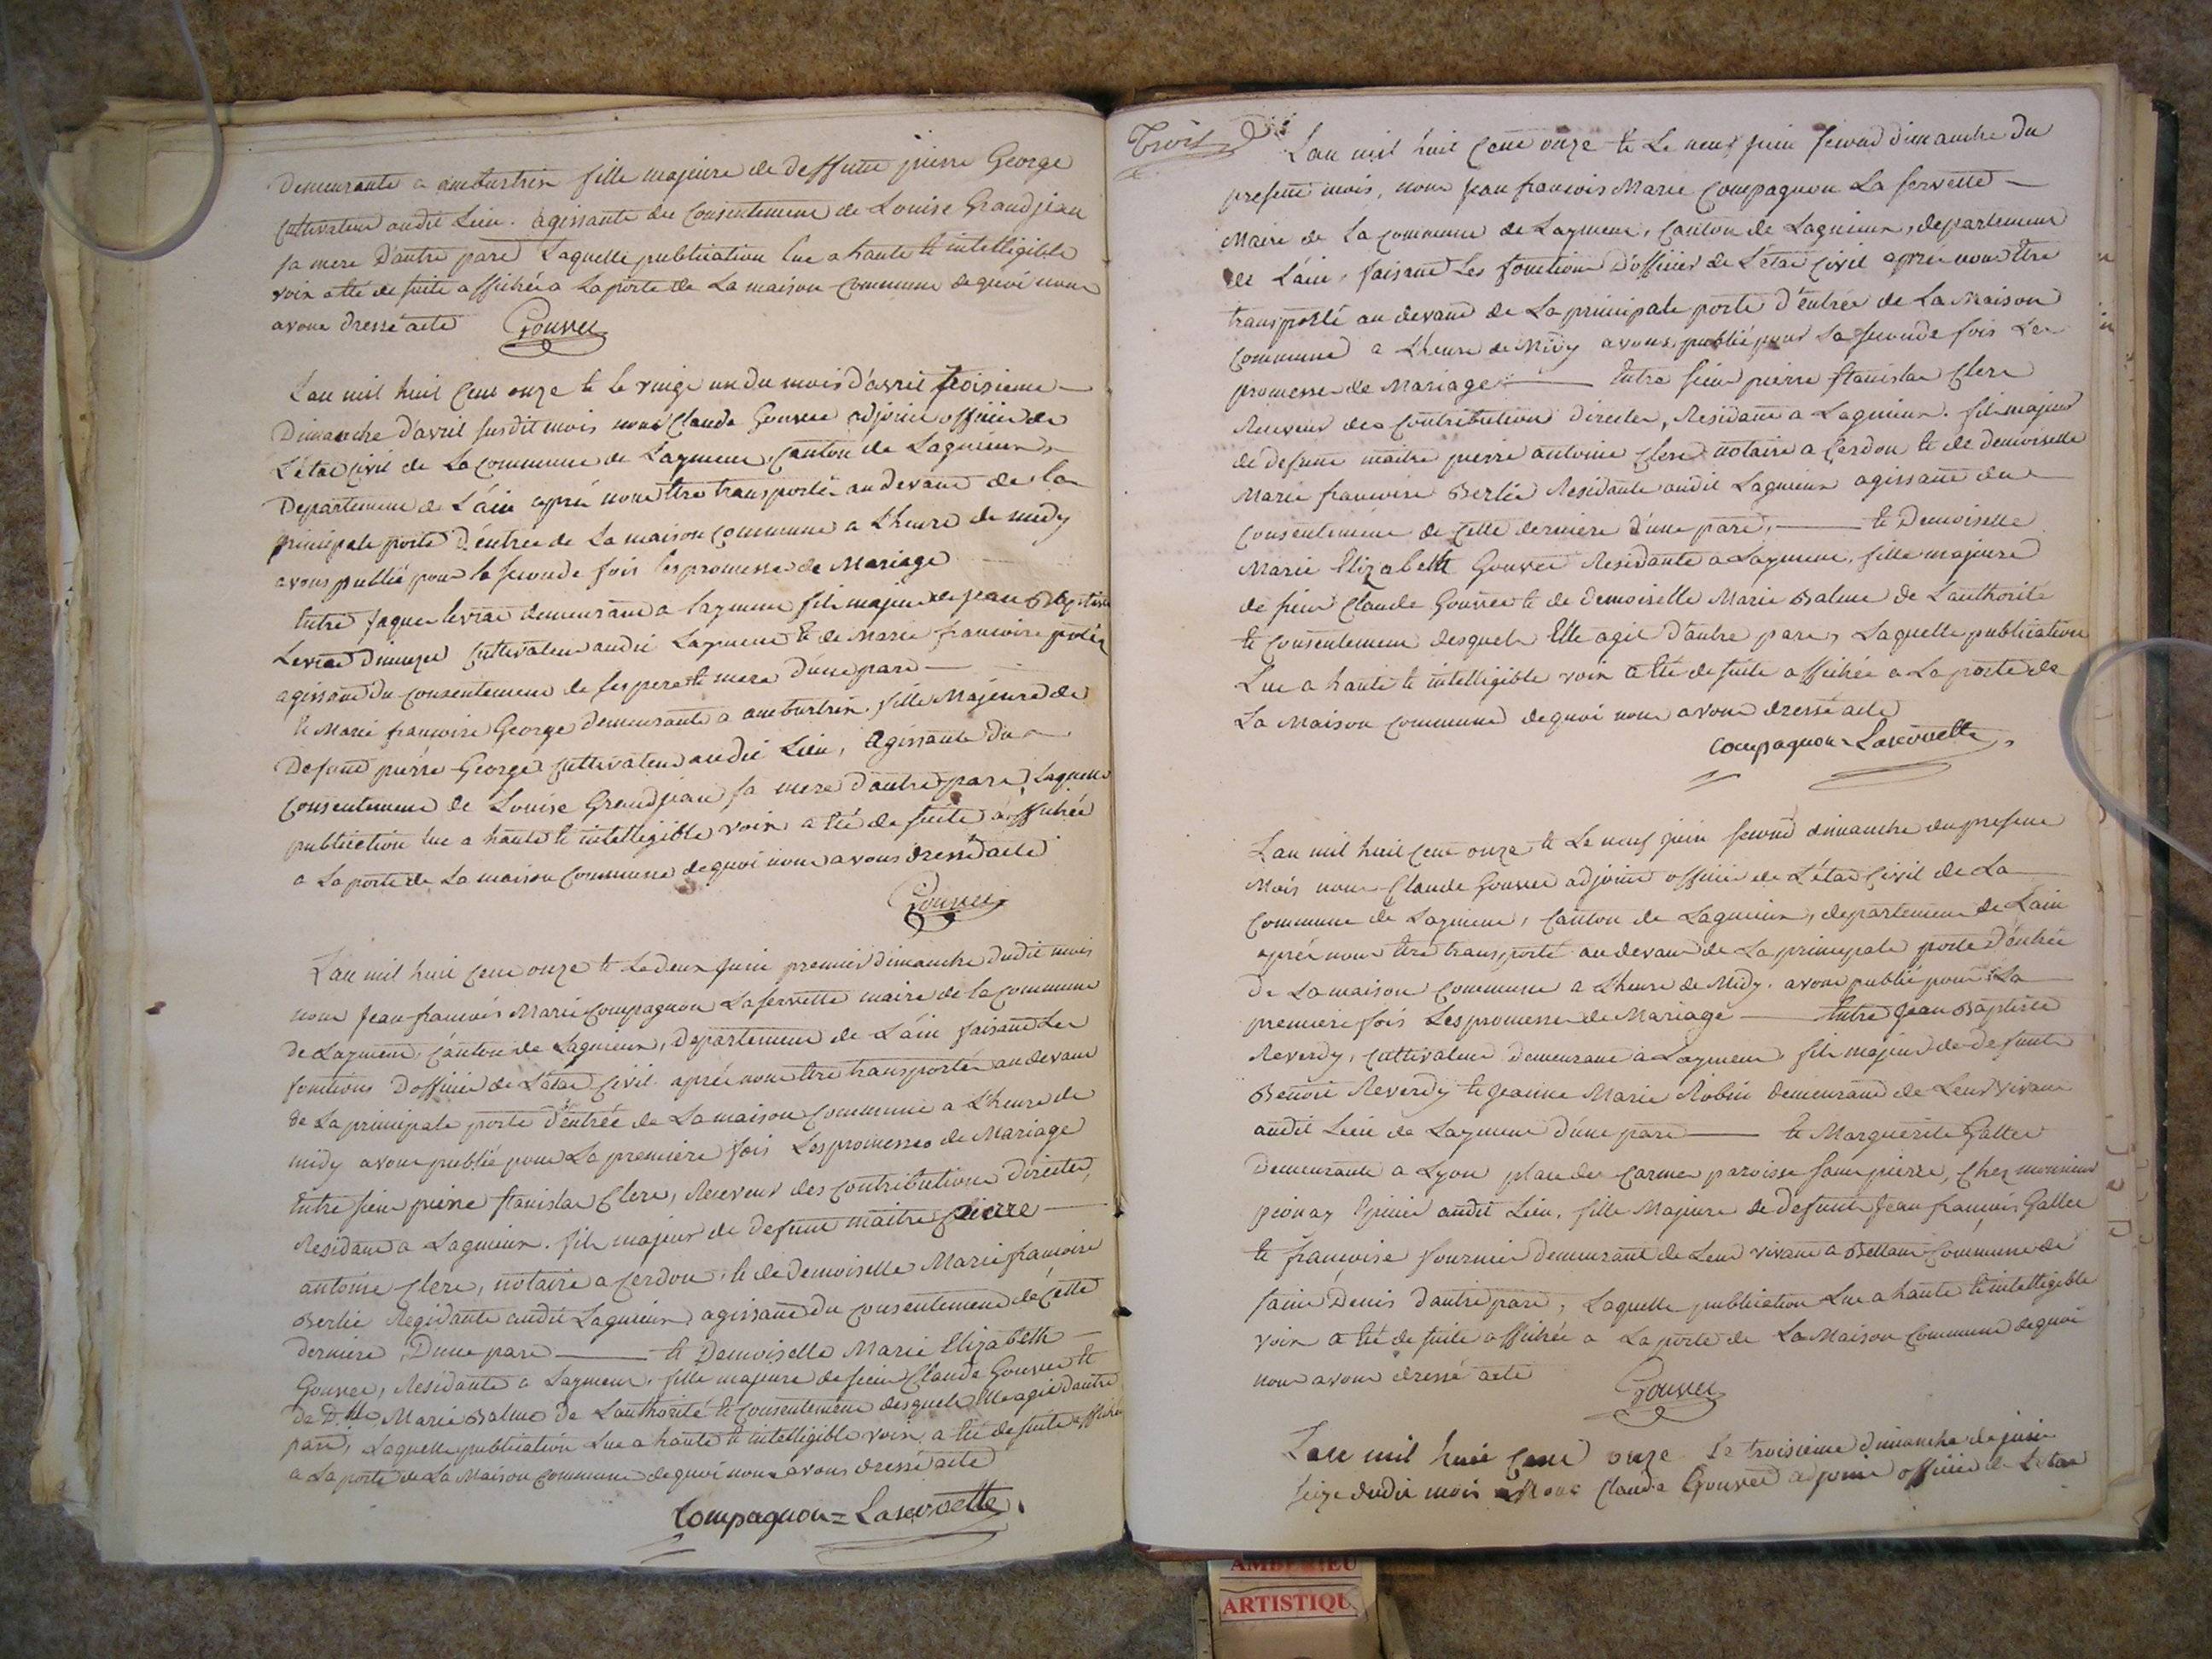 Demeurante a ambutrix fille majeure de deffunt pierre George
Cultivateur audit Lieu. agissante du Consentement de Louise Grandjean
sa mere D'autre part Laquelle publication lue a haute et intelligible
voix a été de suite affichée a La porte de La maison Commune dequoi nous
avons dressé acte Gouvee
Lan mil huit Cent onze et le vingt un du mois d'avril troisieme
Dimanche d'avril susdit mois nous Claude Gouvee adjoint officier de
L'état Civil de La Commune de Laymeut, Canton de Lagnieux,
Departement de L'ain aprés nous etre transportés au devant de la
principale porte D'entrée de La maison Commune a L'heure de midy
avons publié pour la seconde fois les promesses de Mariage
Entre Jaque levrat demeurant a laymeut fils majeur de Jean Baptiste
Levrat cultivateur audit Laymeut et de Marie francoise
agissant du consentement de ses pere et mere d'une part
et Marie francoise George demeurante a ambutrix. fille Majeure de
Defunt pierre George Cultivateur audit Lieu, agissante du
Consentement de Louise Grandjean sa mere d'autre part, Laquelle
publication lue a haute et intelligible voix a été de suite affichée
a La porte de La maison Commune dequoi nous avons dressé acte
Gouvee
Lan mil huit cent onze et Le deux Juin premier dimanche dudit mois
nous Jean francois Marie Compagnon Laservette maire de la Commune
de Laymeut, Canton de Lagnieux, Departement de L'ain faisant Les
fonctions D'officier de L'état Civil. aprés nous etre transportés au devant
de La principale porte d'entrée de La maison Commune a L'heure de
midy avons publié pour La premiere fois Les promesses de Mariage
Entre sieur pierre Stanislas Clerc, Receveur des contributions Directes,
Residant a Lagnieux. fils majeur de defunt maitre pierre
antoine Clerc, notaire a Cerdon. et de demoiselle Marie francoise
Berlié Residante audit Lagnieux agissant du consentement de Cette
derniere D'une part et Demoiselle Marie Elizabeth
Gouvee, Residante a Laymeut. fille majeure de sieur Claude Gouvee et
de D.lle Marie Balme de L'authorité et Consentement desquels Elle agit d'autre
part, Laquelle publication Lue a haute et intelligible voix, a été de suite affichée
a La porte de La Maison Commune dequoi nous avons dressé acte
Compagnon = Laservette
Trois
Lan mil huit Cent onze et Le neuf Juin second dimanche du
present mois, nous Jean francois Marie Compagnon La servette
Maire de La commune de Laymeut, Canton de Lagnieux, departement
de L'ain, faisant Les fonctions D'officier de L'état Civil aprés nous etre
transporté au devant de La principale porte d'entrée de La Maison
Commune a L'heure de Midy avons publié pour La seconde fois Les
promesses de Mariage Entre sieur pierre Stanislas Clerc
Receveur des Contributions Directes, Residant a Lagnieux. fils majeur
de defunt maitre pierre antoine Clerc notaire a Cerdon et de demoiselle
Marie francoise Berlié Residante audit Lagnieux agissant du
Consentement de Cette derniere d'une part, et Demoiselle
Marie Elizabeth Gouvee Residante a Laymeut, fille majeure
de sieur Claude Gouvee et de demoiselle Marie Balme de L'authorité
et Consentement desquels Elle agit d'autre part, Laquelle publication
Lue a haute et intelligible voix a été de suite affichée a La porte de
La Maison Commune dequoi nous avons dressé acte
Compagnon = Laservette
Lan mil huit cent onze et Le neuf juin second dimanche du present
Mois nous Claude Gouvee adjoint officier de L'état Civil de La
Commune de Laymeut, Canton de Lagnieux, departement de L'ain
aprés nous etre transporté au devant de La principale porte D'entrée
de La maison Commune a L'heure de Midy. avons publié pour La
premiere fois Les promesses de Mariage Entre Jean Baptiste
Reverdy, Cultivateur demeurant a Laymeut, fils majeur de defunts
Benoit Reverdy et Jeanne Marie Robin demeurant de Leur vivant
audit Lieu de Laymeut d'une part et Marguerite Gallet
Demeurante a Lyon place des Carmes paroisse saint pierre, Chez monsieur
Epicier audit Lieu, fille Majeure de defunts Jean francois Gallet
et francoise fournier demeurant de Leur vivant a Bettant Commune de
saint Denis d'autre part, Laquelle publication Lue a haute et intelligible
voix a été de suite affichée a La porte de La Maison Commune dequoi
nous avons dressé acte Gouvee
Lan mil huit Cent onze Le troisieme dimanche de juin
seize dudit mois Nous Claude Gouvee adjoint officier de L'état
AMBERIEU
ARTISTIQU